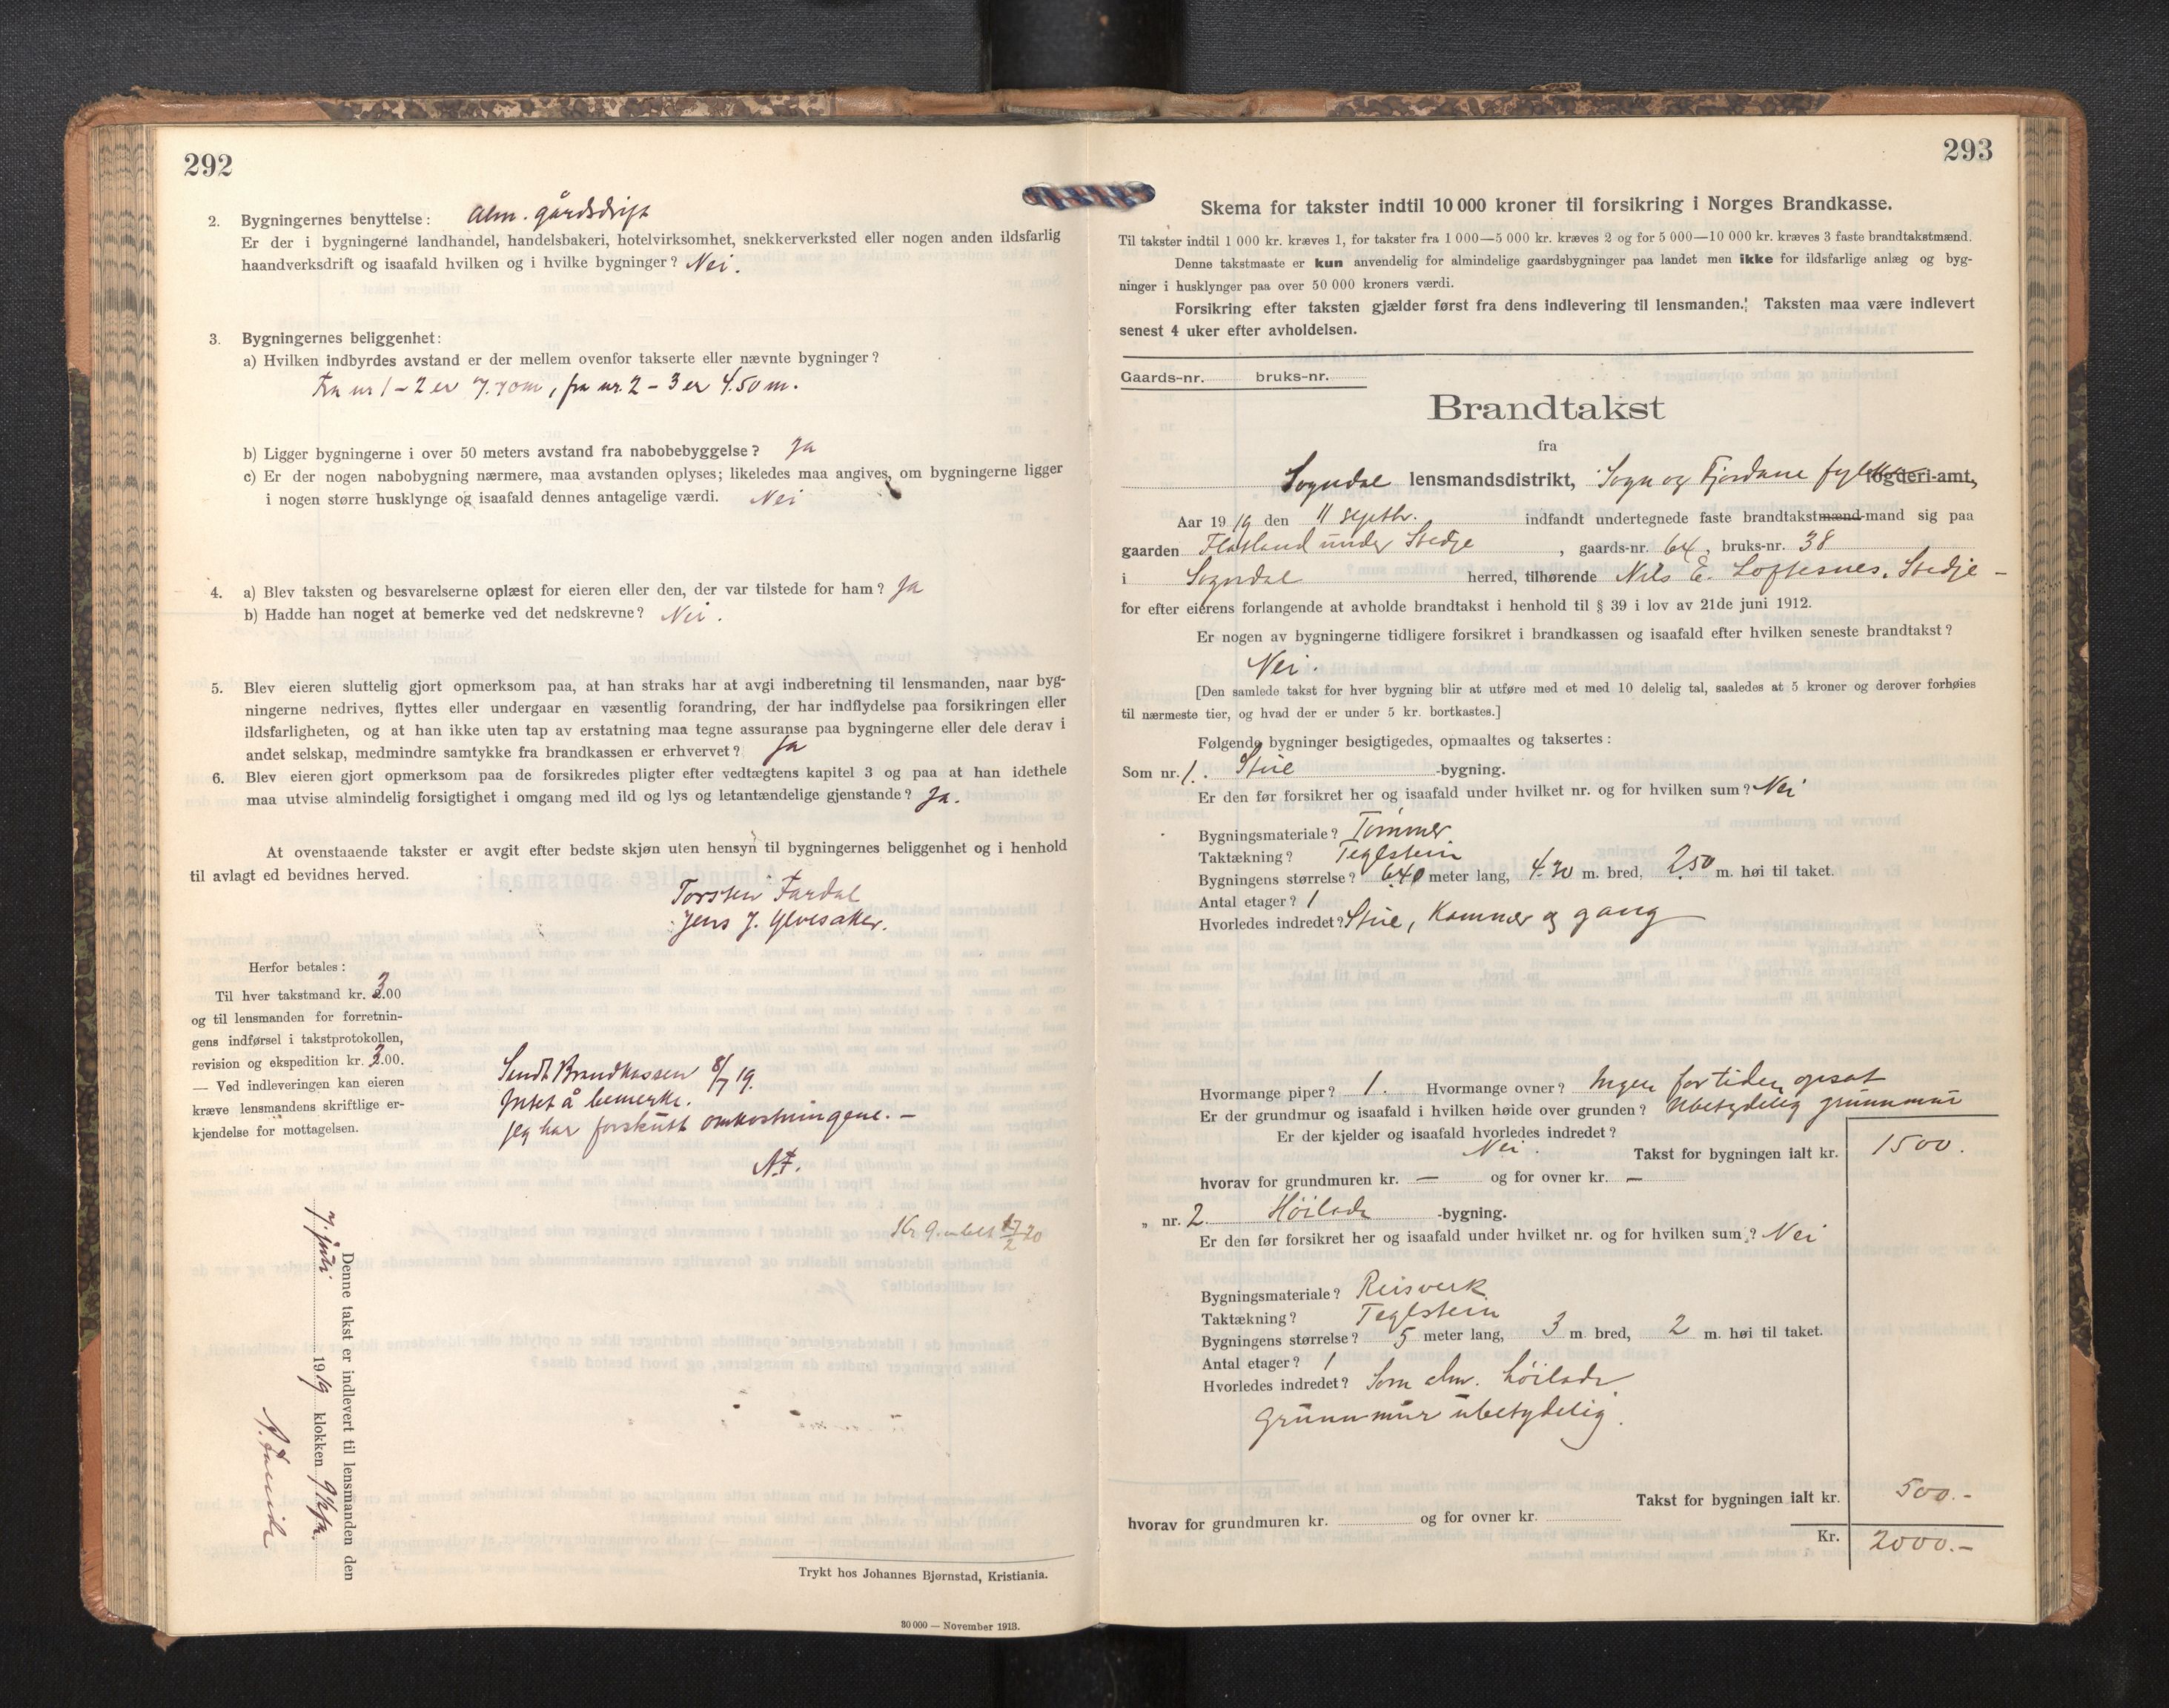 292
2. Bygningernes benyttelse: Alm. gårdsdrift
Er der i bygningerne landhandel, handelsbakeri, hotelvirksomhet, snekkerverksted eller nogen anden ildsfarlig
haandverksdrift og isaafald hvilken og i hvilke bygninger? Nei.
3. Bygningernes beliggenhet:
a) Hvilken indbyrdes avstand er der mellem ovenfor takserte eller nævnte bygninger?
Fra nr 1 – 2 er 7.70m, fra nr. 2 – 3 er 4.50 m.
b) Ligger bygningerne i over 50 meters avstand fra nabobebyggelse? Ja
c) Er der nogen nabobygning nærmere, maa avstanden oplyses; likeledes maa angives, om bygningerne ligger
i nogen større husklynge og isaafald dennes antagelige værdi. Nei
4. a) Blev taksten og besvarelserne oplæst for eieren eller den, der var tilstede for ham? Ja
b) Hadde han noget at bemerke ved det nedskrevne? Nei.
5. Blev eieren sluttelig gjort opmerksom paa, at han straks har at avgi indberetning til lensmanden, naar byg-
ningerne nedrives, flyttes eller undergaar en væsentlig forandring, der har indflydelse paa forsikringen eller
ildsfarligheten, og at han ikke uten tap av erstatning maa tegne assuranse paa bygningerne eller dele derav i
andet selskap, medmindre samtykke fra brandkassen er erhvervet? Ja
6. Blev eieren gjort opmerksom paa de forsikredes pligter efter vedtægtens kapitel 3 og paa at han idethele
maa utvise almindelig forsigtighet i omgang med ild og lys og letantændelige gjenstande? Ja.
At ovenstaaende takster er avgit efter bedste skjøn uten hensyn til bygningernes beliggenhet og i henhold
til avlagt ed bevidnes herved.
Torstein Fardal
Jens J. Ylvesaker.
Herfor betales:
Til hver takstmand kr. 3.00
og til lensmanden for forretnin-
gens indførsel i takstprotokollen,
revision og ekspedition kr. 3.00.
— Ved indleveringen kan eieren
kræve lensmandens skriftlige er-
kjendelse for mottagelsen.
Sendt Brandkassen 8/7 19.
Intet å bemerke.
Jeg har forskutt omkostningene. –
N.F.
Kr 9. 17/2 20
Denne takst er indlevert til lensmanden den
7. juli 1919 klokken 9
Trykt hos Johannes Bjørnstad, Kristiania.
30 000 — November 1918.
293
Skema for takster indtil 10 000 kroner til forsikring i Norges Brandkasse.
Til takster indtil 1 000 kr. kræves 1, for takster fra 1 000—5 000 kr. kræves 2 og for 5 000—10 000 kr. kræves 3 faste brandtakstmænd.
Denne takstmaate er kun anvendelig for almindelige gaardsbygninger paa landet men ikke for ildsfarlige anlæg og byg-
ninger i husklynger paa over 50 000 kroners værdi.
Forsikring efter taksten gjælder først fra dens indlevering til lensmanden. Taksten maa være indlevert
senest 4 uker efter avholdelsen.
Gaards-nr. bruks-nr.
Brandtakst
fra
Sogndal lensmandsdistrikt, Sogn og Fjordane fylke fogderi-amt,
Aar 1919 den 11 septbr. indfandt undertegnede faste brandtakstmænd-mand sig paa
gaarden Flatland under Stedje, gaards-nr. 64, bruks-nr. 38
i Sogndal herred, tilhørende Nils E. Loftesnes, Stedje –
for efter eierens forlangende at avholde brandtakst i henhold til § 39 i lov av 21de juni 1912.
Er nogen av bygningerne tidligere forsikret i brandkassen og isaafald efter hvilken seneste brandtakst?
Nei.
[Den samlede takst for hver bygning blir at utføre med et med 10 delelig tal, saaledes at 5 kroner og derover forhøies
til nærmeste tier, og hvad der er under 5 kr. bortkastes.]
Følgende bygninger besigtigedes, opmaaltes og taksertes:
Som nr. 1. Stue -bygning.
Er den før forsikret her og isaafald under hvilket nr. og for hvilken sum? Nei
Bygningsmateriale? Tømmer
Taktækning? Teglstein
Bygningens størrelse? 6.40 meter lang, 4.30 m. bred, 2.50 m. høi til taket.
Antal etager? 1
Hvorledes indredet? Stue, kammer og gang
Hvormange piper? 1. Hvormange ovner? Ingen for tiden opsat
Er der grundmur og isaafald i hvilken høide over grunden? Ubetydelig grunnmur
Er der kjelder og isaafald hvorledes indredet?
Nei. Takst for bygningen ialt kr. 1500.
hvorav for grundmuren kr. — og for ovner kr. —
„ nr. 2. Høilade -bygning.
Er den før forsikret her og isaafald under hvilket nr. og for hvilken sum? Nei
Bygningsmateriale? Reisverk
Taktækning? Teglstein
Bygningens størrelse? 5 meter lang, 3 m. bred, 2 m. høi til taket.
Antal etager? 1
Hvorledes indredet? Som alm. høilade
Grunnmur ubetydelig.
Takst for bygningen ialt kr. 500.-
hvorav for grundmuren kr. og for ovner kr.
Kr. 2000.-